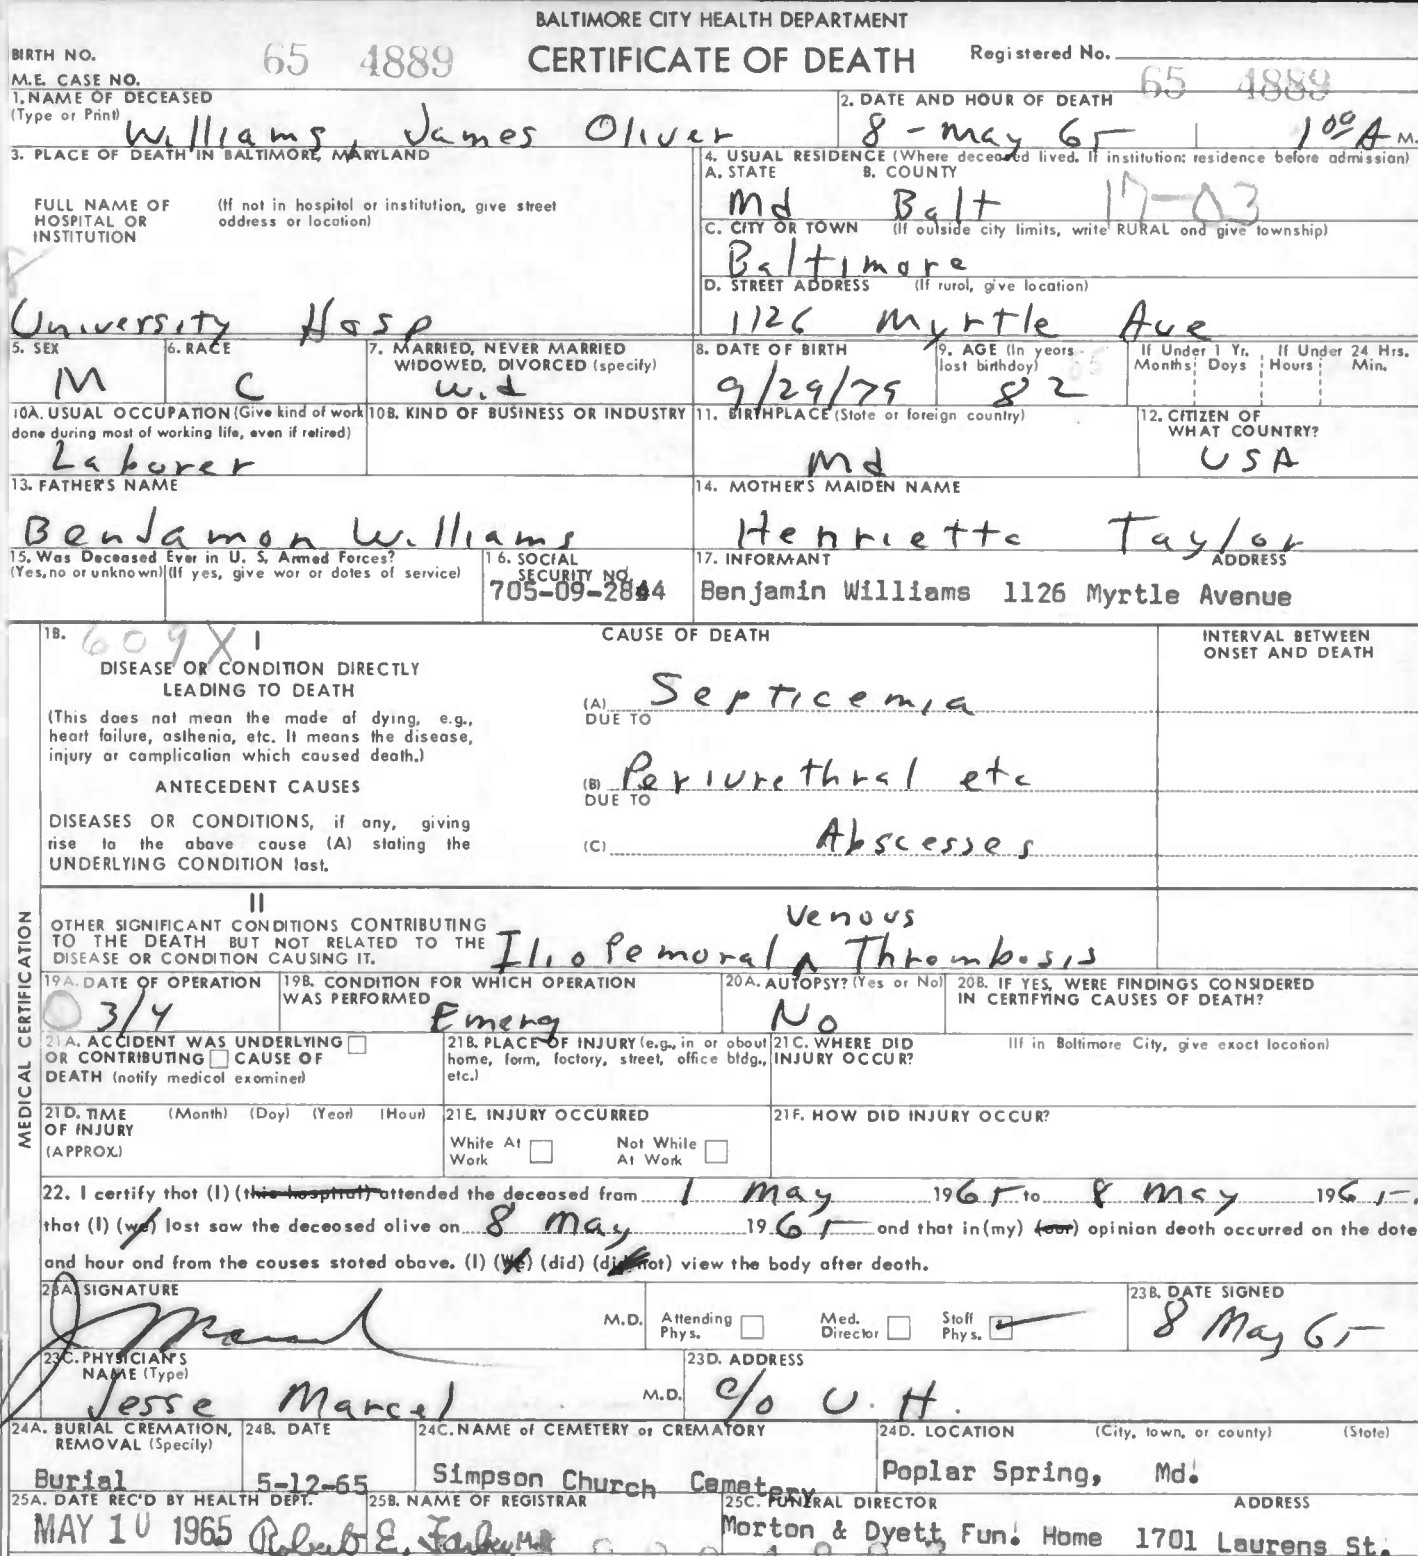 BALTIMORE CITY HEALTH DEPARTMENT
BIRTH NO. 65 4889 CERTIFICATE OF DEATH Registered No.
M.E. CASE NO. 65 4889
1. NAME OF DECEASED (Type or Print) Williams, James Oliver
2. DATE AND HOUR OF DEATH 8 - May 65 1 00 A M.
3. PLACE OF DEATH IN BALTIMORE, MARYLAND
FULL NAME OF HOSPITAL OR INSTITUTION (If not in hospital or institution, give street address or location)
University Hosp
4. USUAL RESIDENCE (Where deceased lived. If institution: residence before admission)
A. STATE B. COUNTY
Md Balt 17-03
C. CITY OR TOWN (If outside city limits, write RURAL and give township)
Baltimore
D. STREET ADDRESS (If rural, give location)
1126 Myrtle Ave
5. SEX M
6. RACE C
7. MARRIED, NEVER MARRIED WIDOWED, DIVORCED (specify) Wid
8. DATE OF BIRTH 9/29/79
9. AGE (In years lost birthday) 82
If Under 1 Yr. Months Days
If Under 24 Hrs. Hours Min.
10A. USUAL OCCUPATION (Give kind of work done during most of working life, even if retired) Laborer
10B. KIND OF BUSINESS OR INDUSTRY
11. BIRTHPLACE (State or foreign country) Md
12. CITIZEN OF WHAT COUNTRY? USA
13. FATHER'S NAME Bendamon Williams
14. MOTHER'S MAIDEN NAME Henrietta Taylor
15. Was Deceased Ever in U. S. Armed Forces? (Yes, no or unknown) (If yes, give war or dates of service)
16. SOCIAL SECURITY NO. 705-09-2844
17. INFORMANT ADDRESS
Benjamin Williams 1126 Myrtle Avenue
MEDICAL CERTIFICATION
18. 609X I CAUSE OF DEATH INTERVAL BETWEEN ONSET AND DEATH
DISEASE OR CONDITION DIRECTLY LEADING TO DEATH
(This does not mean the mode of dying, e.g., heart failure, asthenia, etc. It means the disease, injury or complication which caused death.)
(A) Septicemia
DUE TO
ANTECEDENT CAUSES
(B) Periurethral etc
DUE TO
DISEASES OR CONDITIONS, if any, giving rise to the above cause (A) stating the UNDERLYING CONDITION last.
(C) Abscesses
II
OTHER SIGNIFICANT CONDITIONS CONTRIBUTING TO THE DEATH BUT NOT RELATED TO THE DISEASE OR CONDITION CAUSING IT.
Iliofemoral Venous Thrombosis
19A. DATE OF OPERATION 3/4
19B. CONDITION FOR WHICH OPERATION WAS PERFORMED Emerg
20A. AUTOPSY? (Yes or No) No
20B. IF YES, WERE FINDINGS CONSIDERED IN CERTIFYING CAUSES OF DEATH?
21A. ACCIDENT WAS UNDERLYING OR CONTRIBUTING CAUSE OF DEATH (notify medical examiner)
21B. PLACE OF INJURY (e.g., in or about home, farm, factory, street, office bldg., etc.)
21C. WHERE DID INJURY OCCUR? (If in Baltimore City, give exact location)
21D. TIME OF INJURY (APPROX.) (Month) (Day) (Year) (Hour)
21E. INJURY OCCURRED While At Work Not While At Work
21F. HOW DID INJURY OCCUR?
22. I certify that (I) (this hospital) attended the deceased from 1 May 1965 to 8 May 1965,
that (I) (we) last saw the deceased alive on 8 May 1965 and that in (my) (our) opinion death occurred on the date
and hour and from the causes stated above. (I) (We) (did) (did not) view the body after death.
23A. SIGNATURE J Marcel M.D.
Attending Phys. Med. Director Staff Phys.
23B. DATE SIGNED 8 May 65
23C. PHYSICIAN'S NAME (Type) Jesse Marcel M.D.
23D. ADDRESS c/o U. H.
24A. BURIAL CREMATION, REMOVAL (Specify) Burial
24B. DATE 5-12-65
24C. NAME of CEMETERY or CREMATORY Simpson Church Cemetery
24D. LOCATION (City, town, or county) (State) Poplar Spring, Md.
25A. DATE REC'D BY HEALTH DEPT. MAY 10 1965
25B. NAME OF REGISTRAR Robert E. Farber MD
25C. FUNERAL DIRECTOR ADDRESS
Morton & Dyett Fun. Home 1701 Laurens St.